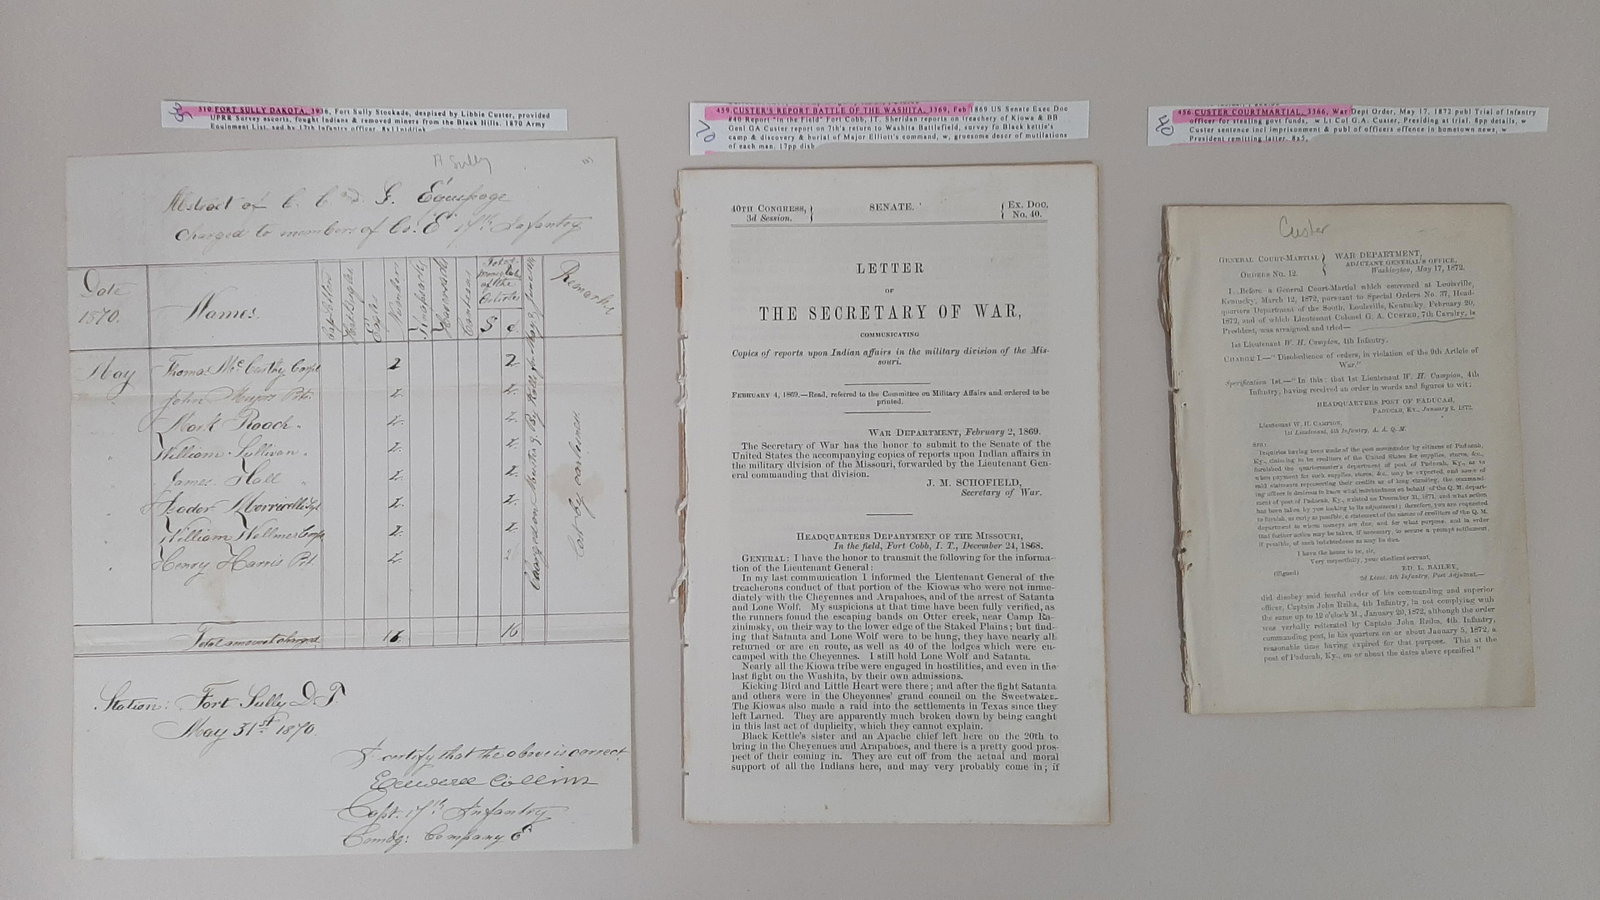 510 FORT SULLY DAKOTA, 1936, Fort Sully Stockade, despised by Libbie Custer, provided
UPRR Survey escorts, fought Indians & removed miners from the Black Hills. 1870 Army
Equipment List, sgd by 17th Infantry officer.
Ft Sully
Abstract of C. C. & G. Equipage
charged to members of Co. E 17th Infantry
Date
1870.
Names.
Numbers
Canteens
of the
Article
$
c
Remarks
May
Thomas McCarthy Corpl 2 2
John Myers Pvt. 2 2
Mark Roach 2 2
William Sullivan 2 2
James Hall 2 2
2 2
William 2 2
Henry Harris Pvt 2
Lost by carlessness
Total amount charged 16 16
Station: Fort Sully D.T.
May 31st 1870
I certify that the above is correct
Edward Collins
Capt. 17th Infantry
Comdg: Company E
459 CUSTER'S REPORT BATTLE OF THE WASHITA, 1369, Feb 1869 US Senate Exec Doc
#40 Report "In the Field" Fort Cobb, IT. Sheridan reports on treachery of Kiowa & BB
Genl GA Custer report on 7th's return to Washita Battlefield, survey fo Black kettle's
camp & discovery & burial of Major Elliott's command, w, gruesome descr of mutilations
of each man. 13pp disb
40TH CONGRESS,
3d Session.
SENATE.
EX. DOC.
No. 40.
LETTER
OF
THE SECRETARY OF WAR,
COMMUNICATING
Copies of reports upon Indian affairs in the military division of the Mis-
souri.
FEBRUARY 4, 1869.—Read, referred to the Committee on Military Affairs and ordered to be
printed.
WAR DEPARTMENT, February 2, 1869.
The Secretary of War has the honor to submit to the Senate of the
United States the accompanying copies of reports upon Indian affairs in
the military division of the Missouri, forwarded by the Lieutenant Gen-
eral commanding that division.
J. M. SCHOFIELD,
Secretary of War.
HEADQUARTERS DEPARTMENT OF THE MISSOURI,
In the field, Fort Cobb, I. T., December 24, 1868.
GENERAL: I have the honor to transmit the following for the informa-
tion of the Lieutenant General:
In my last communication I informed the Lieutenant General of the
treacherous conduct of that portion of the Kiowas who were not imme-
diately with the Cheyennes and Arapahoes, and of the arrest of Satanta
and Lone Wolf. My suspicions at that time have been fully verified, as
the runners found the escaping bands on Otter creek, near Camp Ra-
dziminsky, on their way to the lower edge of the Staked Plains; but find-
ing that Satanta and Lone Wolf were to be hung, they have nearly all
returned or are en route, as well as 40 of the lodges which were en-
camped with the Cheyennes. I still hold Lone Wolf and Satanta.
Nearly all the Kiowa tribe were engaged in hostilities, and even in the
last fight on the Washita, by their own admissions.
Kicking Bird and Little Heart were there; and after the fight Satanta
and others were in the Cheyennes' grand council on the Sweetwater.
The Kiowas also made a raid into the settlements in Texas since they
left Larned. They are apparently much broken down by being caught
in this last act of duplicity, which they cannot explain.
Black Kettle's sister and an Apache chief left here on the 20th to
bring in the Cheyennes and Arapahoes, and there is a pretty good pros-
pect of their coming in. They are cut off from the actual and moral
support of all the Indians here, and may very probably come in; if
456 CUSTER COURTMARTIAL, 3366, War Dept Order, May 17, 1872 publ Trial of Infantry
officer for stealing govt funds, w Lt Col G.A. Custer, Presiding at trial. 8pp details, w
Custer sentence incl imprisonment & publ of officers offence in hometown news, w
President remitting latter. 8x5,
Custer
GENERAL COURT-MARTIAL
ORDERS NO. 12.
WAR DEPARTMENT,
ADJUTANT GENERAL'S OFFICE,
Washington, May 17, 1872.
I. Before a General Court-Martial which convened at Louisville,
Kentucky, March 12, 1872, pursuant to Special Orders No. 37, Head-
quarters Department of the South, Louisville, Kentucky, February 20,
1872, and of which Lieutenant Colonel G. A. CUSTER, 7th Cavalry, is
President, was arraigned and tried—
1st Lieutenant W. H. Campion, 4th Infantry.
CHARGE I.—"Disobedience of orders, in violation of the 9th Article of
War."
Specification 1st.—"In this: that 1st Lieutenant W. H. Campion, 4th
Infantry, having received an order in words and figures to wit:
HEADQUARTERS POST OF PADUCAH,
PADUCAH, KY., January 2, 1872.
Lieutenant W. H. CAMPION,
1st Lieutenant, 4th Infantry, A. A. Q. M.
SIR:
Inquiries having been made of the post commander by citizens of Paducah,
Ky., claiming to be creditors of the United States for supplies, stores, &c.,
furnished the quartermaster's department of post of Paducah, Ky., as to
when payment for such supplies, stores, &c., may be expected, and some of
said statements representing their credits as of long standing, the command-
ing officer is desirous to know what indebtedness on behalf of the Q. M. depart-
ment of post of Paducah, Ky., existed on December 31, 1871, and what action
has been taken by you looking to its adjustment; therefore, you are requested
to furnish, as early as possible, a statement of the names of creditors of the Q. M.
department to whom moneys are due, and for what purpose, and in order
that further action may be taken, if necessary, to secure a prompt settlement,
if possible, of such indebtedness as may be due.
I have the honor to be, sir,
Very respectfully, your obedient servant,
(Signed) ED L. BAILEY,
2d Lieut. 4th Infantry, Post Adjutant.—
did disobey said lawful order of his commanding and superior
officer, Captain John Reiha, 4th Infantry, in not complying with
the same up to 12 o'clock M., January 20, 1872, although the order
was verbally reiterated by Captain John Reiha, 4th Infantry,
commanding post, in his quarters on or about January 5, 1872, a
reasonable time having expired for that purpose. This at the
post of Paducah, Ky., on or about the dates above specified"